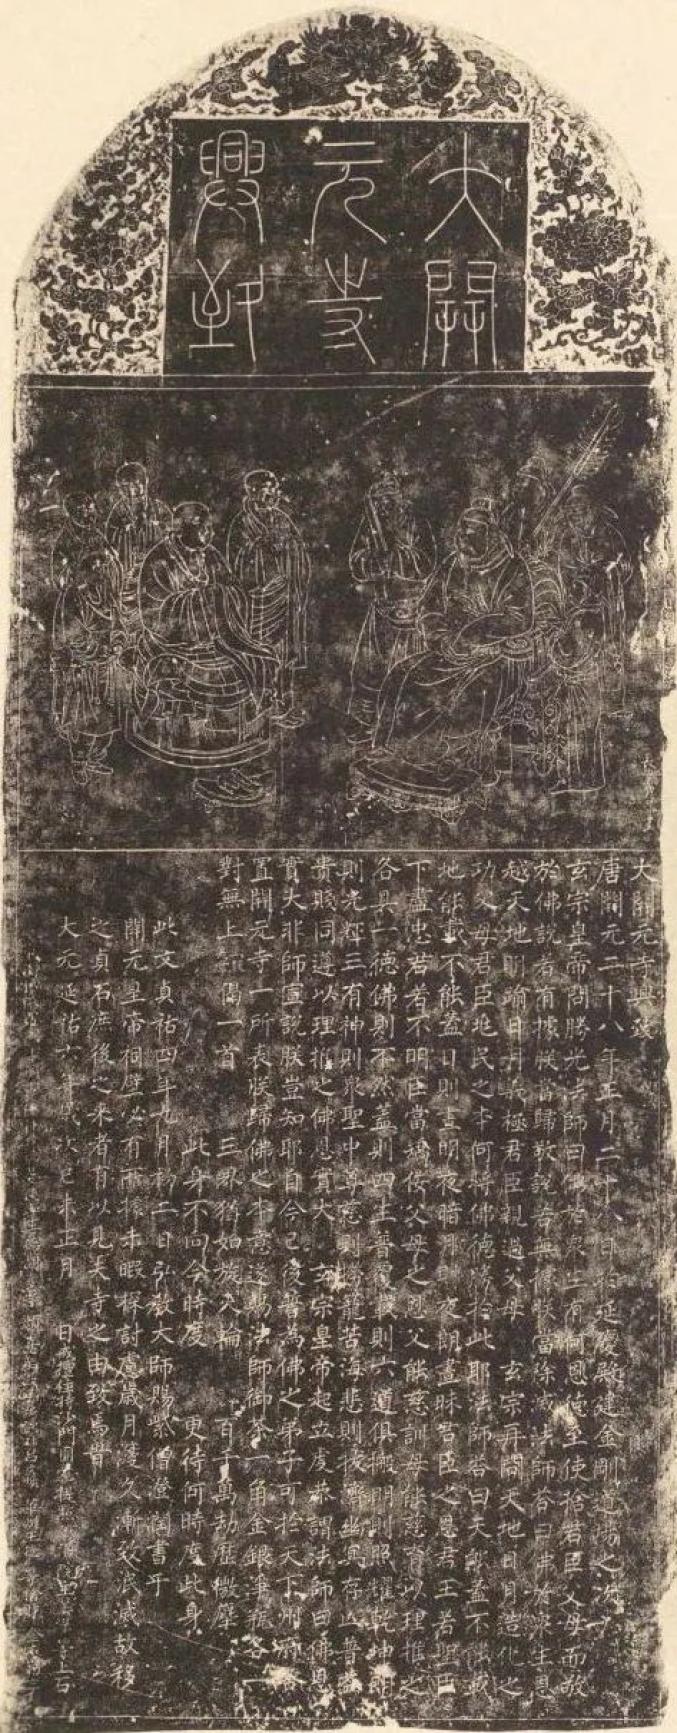 大開
元寺
興記
大開元寺興致
唐開元二十八年正月二十八日於延慶殿建金剛道場之次
玄宗皇帝問勝光法師曰佛於衆生有何恩德至使捨君臣父母而敬
於佛說若有據朕當歸敬說若無據朕當除滅法師答曰佛於衆生恩
越天地明踰日月義極君臣親過父母 玄宗再問天地日月造化之
功父母君臣兆民之本何將佛德勝於此耶法師答曰天能蓋不能載
地能載不能蓋日則晝明夜暗月則夜朗晝昧君臣之恩君王若聖臣
下盡忠君若不明臣當矯佞父母之恩父能慈訓母能慈育以理推之
各具一德佛則不然蓋則四生普覆載則六道俱搬明則照耀乾坤朗
則光輝三有神則衆聖中尊慈則撈籠苦海悲則拔濟幽冥存亡普益
貴賤同遵以理推之佛恩實大 玄宗皇帝起立虔恭謂法師曰佛恩
實大非師宣說朕豈知耶自今已後普為佛之弟子可於天下州府各
置開元寺一所表朕歸佛之本意遂賜法師御茶一角金銀淨瓶各一
對無上 偈一首 三界猶如旋火輪 百千萬劫歷微塵
此身不向今時度 更待何時度此身
此文貞祐四年九月初二日弘教大師賜紫僧 書于
開元皇帝祠壁必有所據未暇探討慮歲月寖久漸致泯滅故移
之貞石庶後之來者有以見夫寺之由致焉耳
大元延祐六年歲次己未正月 日 沙門 上石